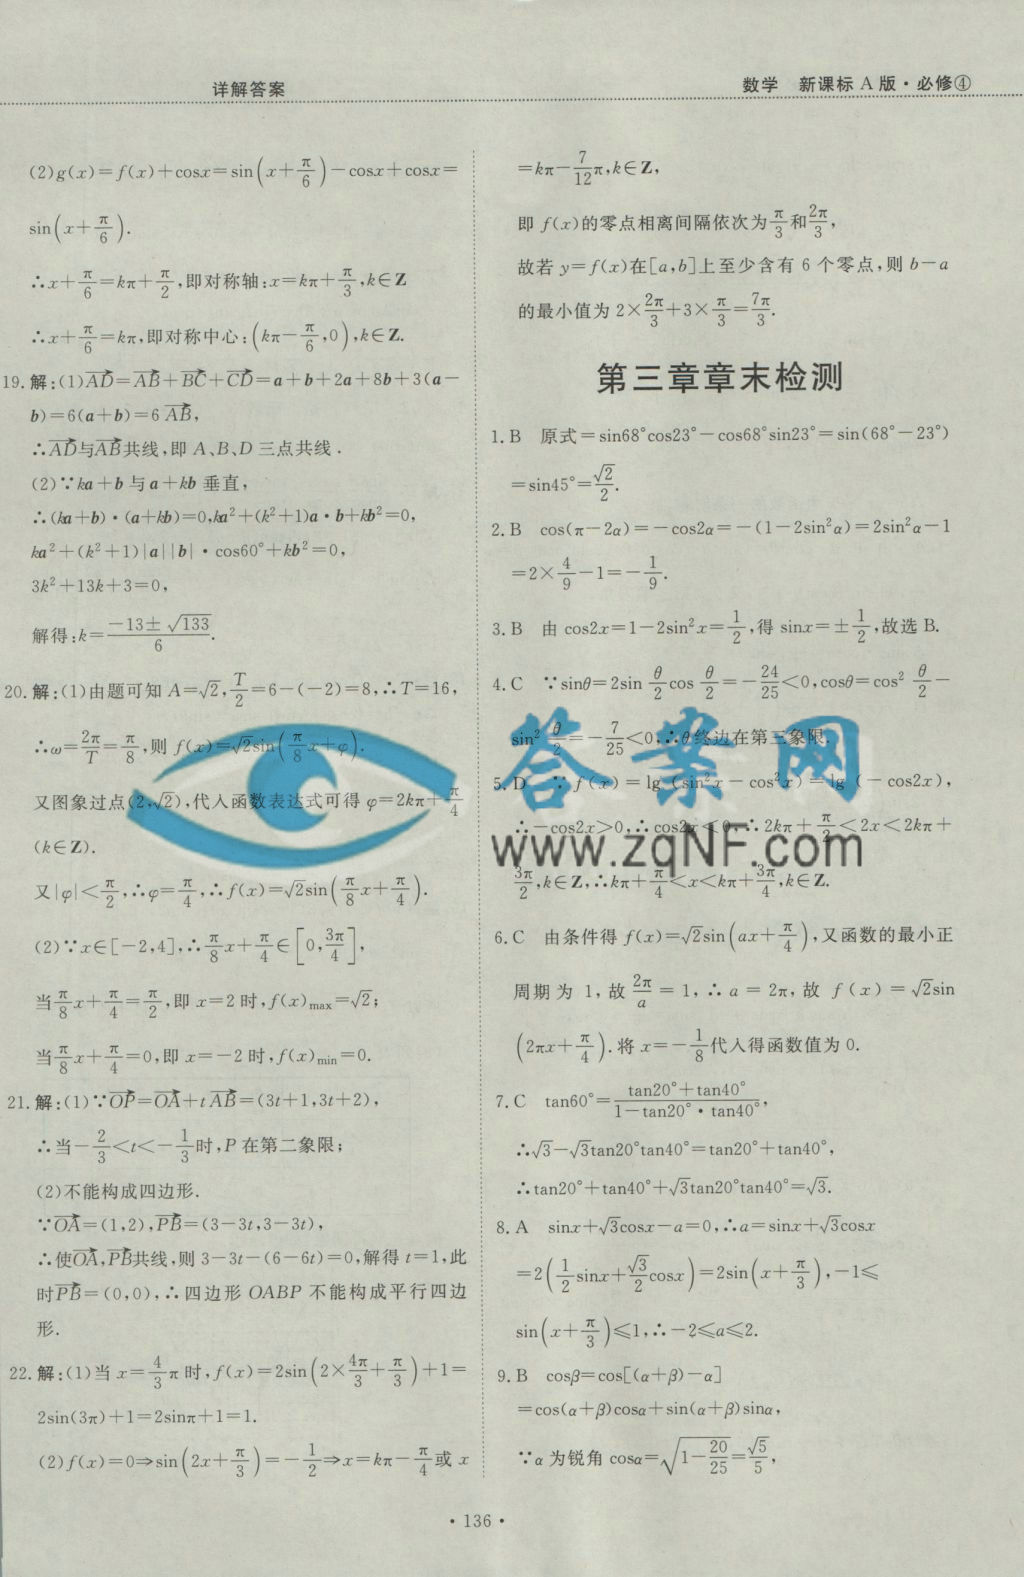 详解答案
数学 新课标 A 版·必修④
(2)g(x)=f(x)+cosx=sin(x+π/6)-cosx+cosx=
sin(x+π/6).
∴x+π/6=kπ+π/2,即对称轴:x=kπ+π/3,k∈Z
∴x+π/6=kπ,即对称中心:(kπ-π/6,0),k∈Z.
19.解:(1)AD=AB+BC+CD=a+b+2a+8b+3(a-
b)=6(a+b)=6 AB,
∴AD与AB共线,即 A、B、D 三点共线.
(2)∵ka+b 与 a+kb 垂直,
∴(ka+b)·(a+kb)=0,ka²+(k²+1)a·b+kb²=0,
ka²+(k²+1)|a||b|·cos60°+kb²=0,
3k²+13k+3=0,
解得:k=(-13±√133)/6.
20.解:(1)由题可知 A=√2,T/2=6-(-2)=8,∴T=16,
∴ω=2π/T=π/8,则 f(x)=√2sin(π/8x+φ).
又图象过点(2,√2),代入函数表达式可得 φ=2kπ+π/4
(k∈Z).
又|φ|<π/2,∴φ=π/4,∴f(x)=√2sin(π/8x+π/4).
(2)∵x∈[-2,4],∴π/8x+π/4∈[0,3π/4],
当π/8x+π/4=π/2,即 x=2 时,f(x)max=√2;
当π/8x+π/4=0,即 x=-2 时,f(x)min=0.
21.解:(1)∵OP=OA+tAB=(3t+1,3t+2),
∴当-2/3<t<-1/3时,P 在第二象限;
(2)不能构成四边形.
∵OA=(1,2),PB=(3-3t,3-3t),
∴使OA,PB共线,则 3-3t-(6-6t)=0,解得 t=1,此
时PB=(0,0),∴四边形 OABP 不能构成平行四边
形.
22.解:(1)当 x=4/3π 时,f(x)=2sin(2×4π/3+π/3)+1=
2sin(3π)+1=2sinπ+1=1.
(2)f(x)=0⇒sin(2x+π/3)=-1/2⇒x=kπ-π/4或 x
=kπ-7/12π,k∈Z,
即 f(x)的零点相离间隔依次为π/3和2π/3,
故若 y=f(x)在[a,b]上至少含有 6 个零点,则 b-a
的最小值为 2×2π/3+3×π/3=7π/3.
第三章章末检测
1.B 原式=sin68°cos23°-cos68°sin23°=sin(68°-23°)
=sin45°=√2/2.
2.B cos(π-2α)=-cos2α=-(1-2sin²α)=2sin²α-1
=2×4/9-1=-1/9.
3.B 由 cos2x=1-2sin²x=1/2,得 sinx=±1/2,故选 B.
4.C ∵sinθ=2sin θ/2 cos θ/2=-24/25<0,cosθ=cos² θ/2-
sin² θ/2=-7/25<0,∴θ终边在第三象限.
5.D ∵f(x)=lg(sin²x-cos²x)=lg(-cos2x),
∴-cos2x>0,∴cos2x<0,∴2kπ+π/2<2x<2kπ+
3π/2,k∈Z,∴kπ+π/4<x<kπ+3π/4,k∈Z.
6.C 由条件得 f(x)=√2sin(ax+π/4),又函数的最小正
周期为 1,故2π/a=1,∴a=2π,故 f(x)=√2sin
(2πx+π/4).将 x=-1/8代入得函数值为 0.
7.C tan60°=(tan20°+tan40°)/(1-tan20°·tan40°),
∴√3-√3tan20°tan40°=tan20°+tan40°,
∴tan20°+tan40°+√3tan20°tan40°=√3.
8.A sinx+√3cosx-a=0,∴a=sinx+√3cosx
=2(1/2sinx+√3/2cosx)=2sin(x+π/3),-1≤
sin(x+π/3)≤1,∴-2≤a≤2.
9.B cosβ=cos[(α+β)-α]
=cos(α+β)cosα+sin(α+β)sinα,
∵α 为锐角 cosα=√(1-20/25)=√5/5,
答案网
www.zqNF.com
·136·